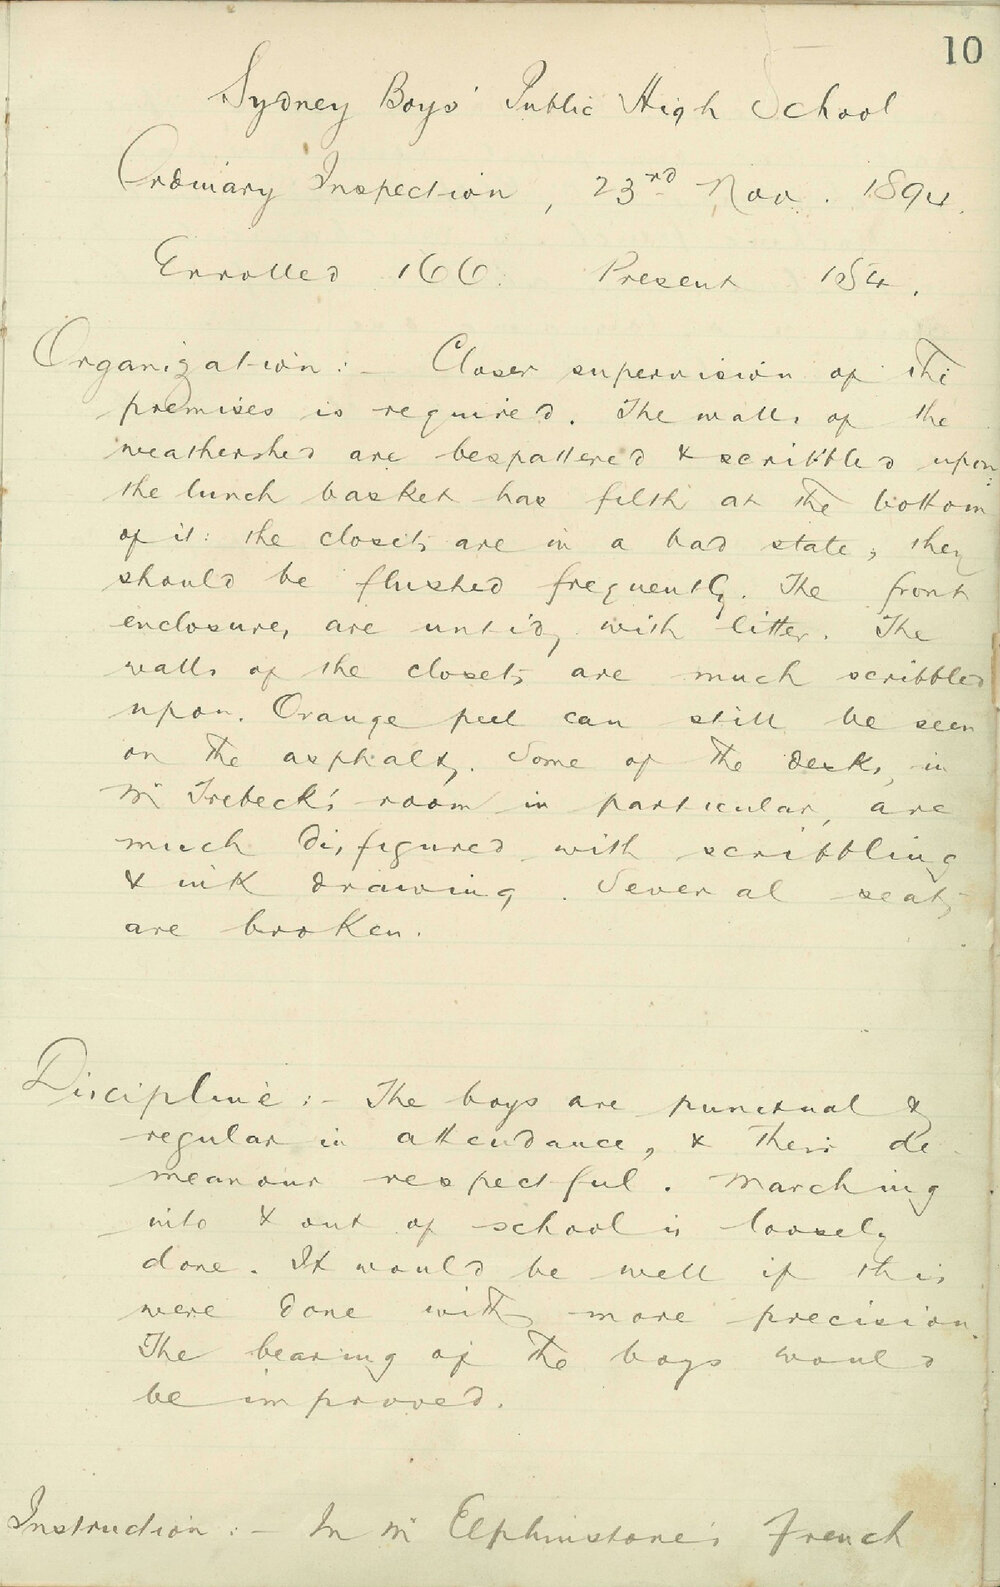 10
Sydney Boys' Public High School
Ordinary Inspection, 23rd Nov. 1894.
Enrolled 166. Present 154.
Organization:- Closer supervision of the
premises is required. The walls of the
weathershed are bespattered & scribbled upon:
the lunch basket has filth at the bottom
of it: the closets are in a bad state; they
should be flushed frequently. The front
enclosures are untidy with litter. The
walls of the closets are much scribbled
upon. Orange peel can still be seen
on the asphalt. Some of the desks, in
Mr Trebeck's room in particular, are
much disfigured with scribbling
& ink drawing. Several seats
are broken.
Discipline:- The boys are punctual &
regular in attendance, & their de-
meanour respectful. Marching
into & out of school is loosely
done. It would be well if this
were done with more precision.
The bearing of the boys would
be improved.
Instruction:- In Mr Elphinstone's French